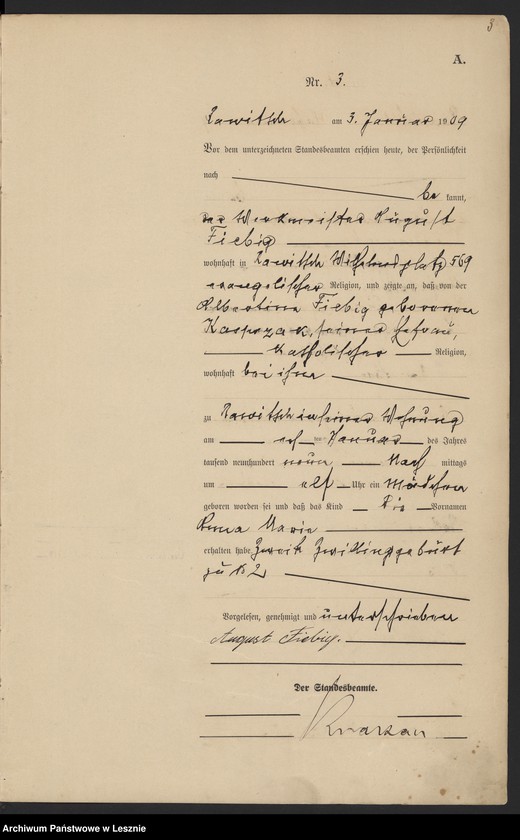 3
A.
Nr. 3.
Rawitsch am 3. Januar 1909
Vor dem unterzeichneten Standesbeamten erschien heute, der Persönlichkeit
nach be kannt,
der Werkmeister August
Fiebig
wohnhaft in Rawitsch Wilhelmsplatz 569
evangelischer Religion, und zeigte an, daß von der
Albertine Fiebig geborenen
Kasprzak, seiner Ehefrau,
katholischer Religion,
wohnhaft bei ihm
zu Rawitsch in seiner Wohnung
am ten Januar des Jahres
tausend neunhundert neun Nach mittags
um elf Uhr ein Mädchen
geboren worden sei und daß das Kind die Vornamen
Anna Marie
erhalten habe. Zwillingsgeburt
zu № 2
Vorgelesen, genehmigt und unterschrieben
August Fiebig.
Der Standesbeamte.
Archiwum Państwowe w Lesznie